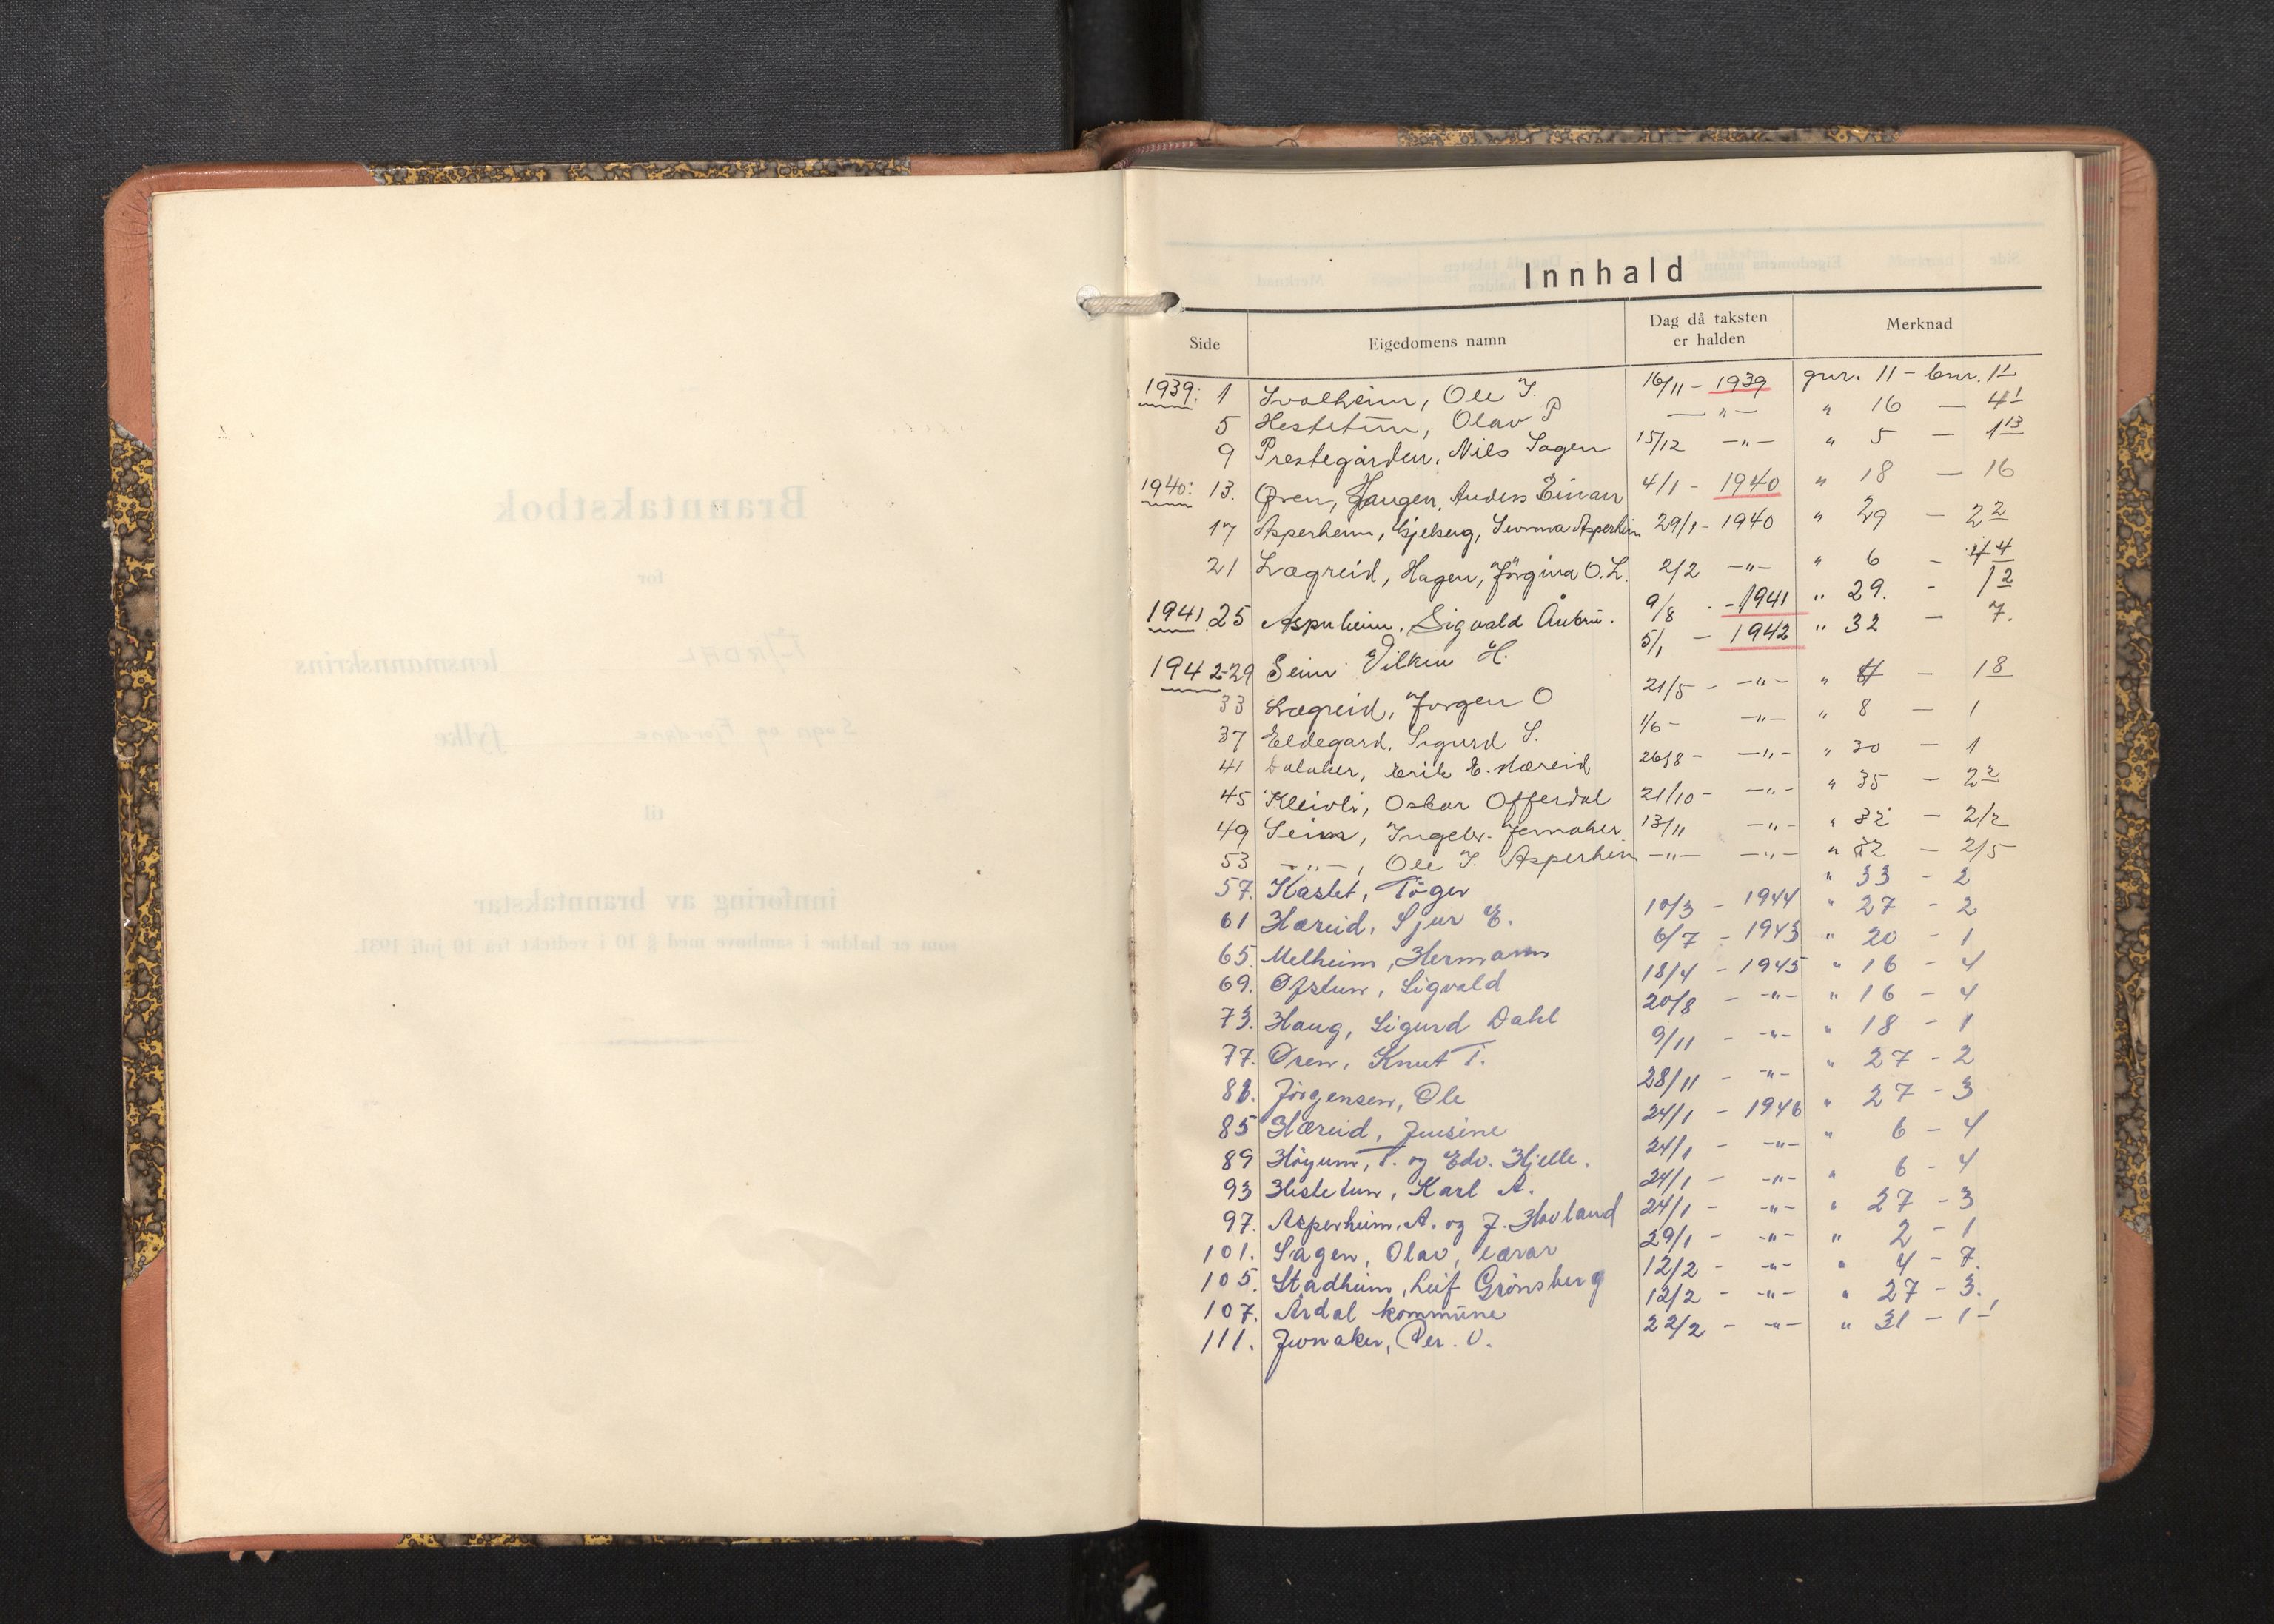 Branntakstbok
for
ÅRDAL lensmannskrins
Sogn og Fjordane fylke
til
innføring av branntakstar
som er haldne i samhøve med § 10 i vedtekt frå 10 juli 1931.
Innhald
Side Eigedomens namn Dag då taksten er halden Merknad
1939: 1 Svalheim, Ole J. 16/11 - 1939 gnr. 11 - bnr. 11
5 Hestetun, Olav P — " — " 16 — 41
9 Prestegården, Nils Sagen 15/12 —"— " 5 — 113
1940: 13. Øren, Haugen, Anders Einar 4/1 - 1940 " 18 — 16
17 Asperheim, Gjelberg, Asperheim 29/1 - 1940 " 29 — 22
21 Lægreid, Hagen, Jørgina O. L. 2/2 —"— " 6 - 44
1941. 25 Asperheim, Sigvald Åubru. 9/8 - 1941 " 29. - 12
1942 - 29 Seim Vilken H. 5/1 - 1942 " 32 - 7.
33 Lægreid, Jorgen O 21/5 - —"— " — 18
37 Eldegard, Sigurd S. 1/6 - —"— " 8 — 1
41 Dalaker, Erik E. Hæreid 26/8 - —"— " 30 — 1
45 Kleivli, Oskar Offerdal 21/10 - —"— " 35 - 22
49 Seim, Ingebr. Jernaker 13/11 —"— " 32 — 2/2
53 —"—, Ole J. Asperheim —"— —"— " 32 — 2/5
57. Kaslet, Töger " 33 - 2
61 Hæreid, Sjur E. 10/3 - 1944 " 27 - 2
65. Melheim, Hermann 6/7 - 1943 " 20 - 1
69. Ofstun, Sigvald 18/4 - 1945 " 16 - 4
73. Haug, Sigurd Dahl 20/8 - -"- " 16 - 4
77. Øren, Knut T. 9/11 - -"- " 18 - 1
81. Jørgensen, Ole 28/11 - -"- " 27 - 2
85 Hæreid, Jensine 24/1 - 1946 " 27 - 3
89 Höyum, T. og Edv. Hjelle. 24/1 - -"- " 6 - 4
93 Hestetun, Karl A. 24/1 - -"- " 6 - 4
97. Asperheim, A. og J. Hovland 24/1 - -"- " 27 - 3
101. Sagen, Olav, lærar 29/1 - -"- " 2 - 1
105. Stadheim, Leif Grönsberg 12/2 - -"- " 4 - 7.
107. Årdal kommune 12/2 - -"- " 27 - 3.
111. Jernaker, Per. O. 22/2 - -"- " 31 - 1 - 1